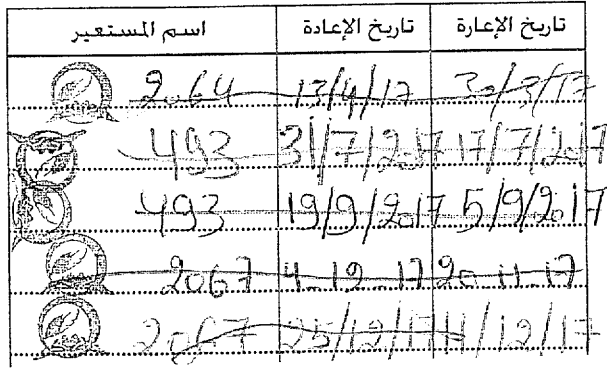 تاريخ الإعارة تاريخ الإعادة اسم المستعير
30/3/17 13/4/17 2064
17/7/2017 31/7/2017 493
5/9/2017 19/9/2017 493
20.11.17 4.12.17 2067
11/12/17 25/12/17 2067